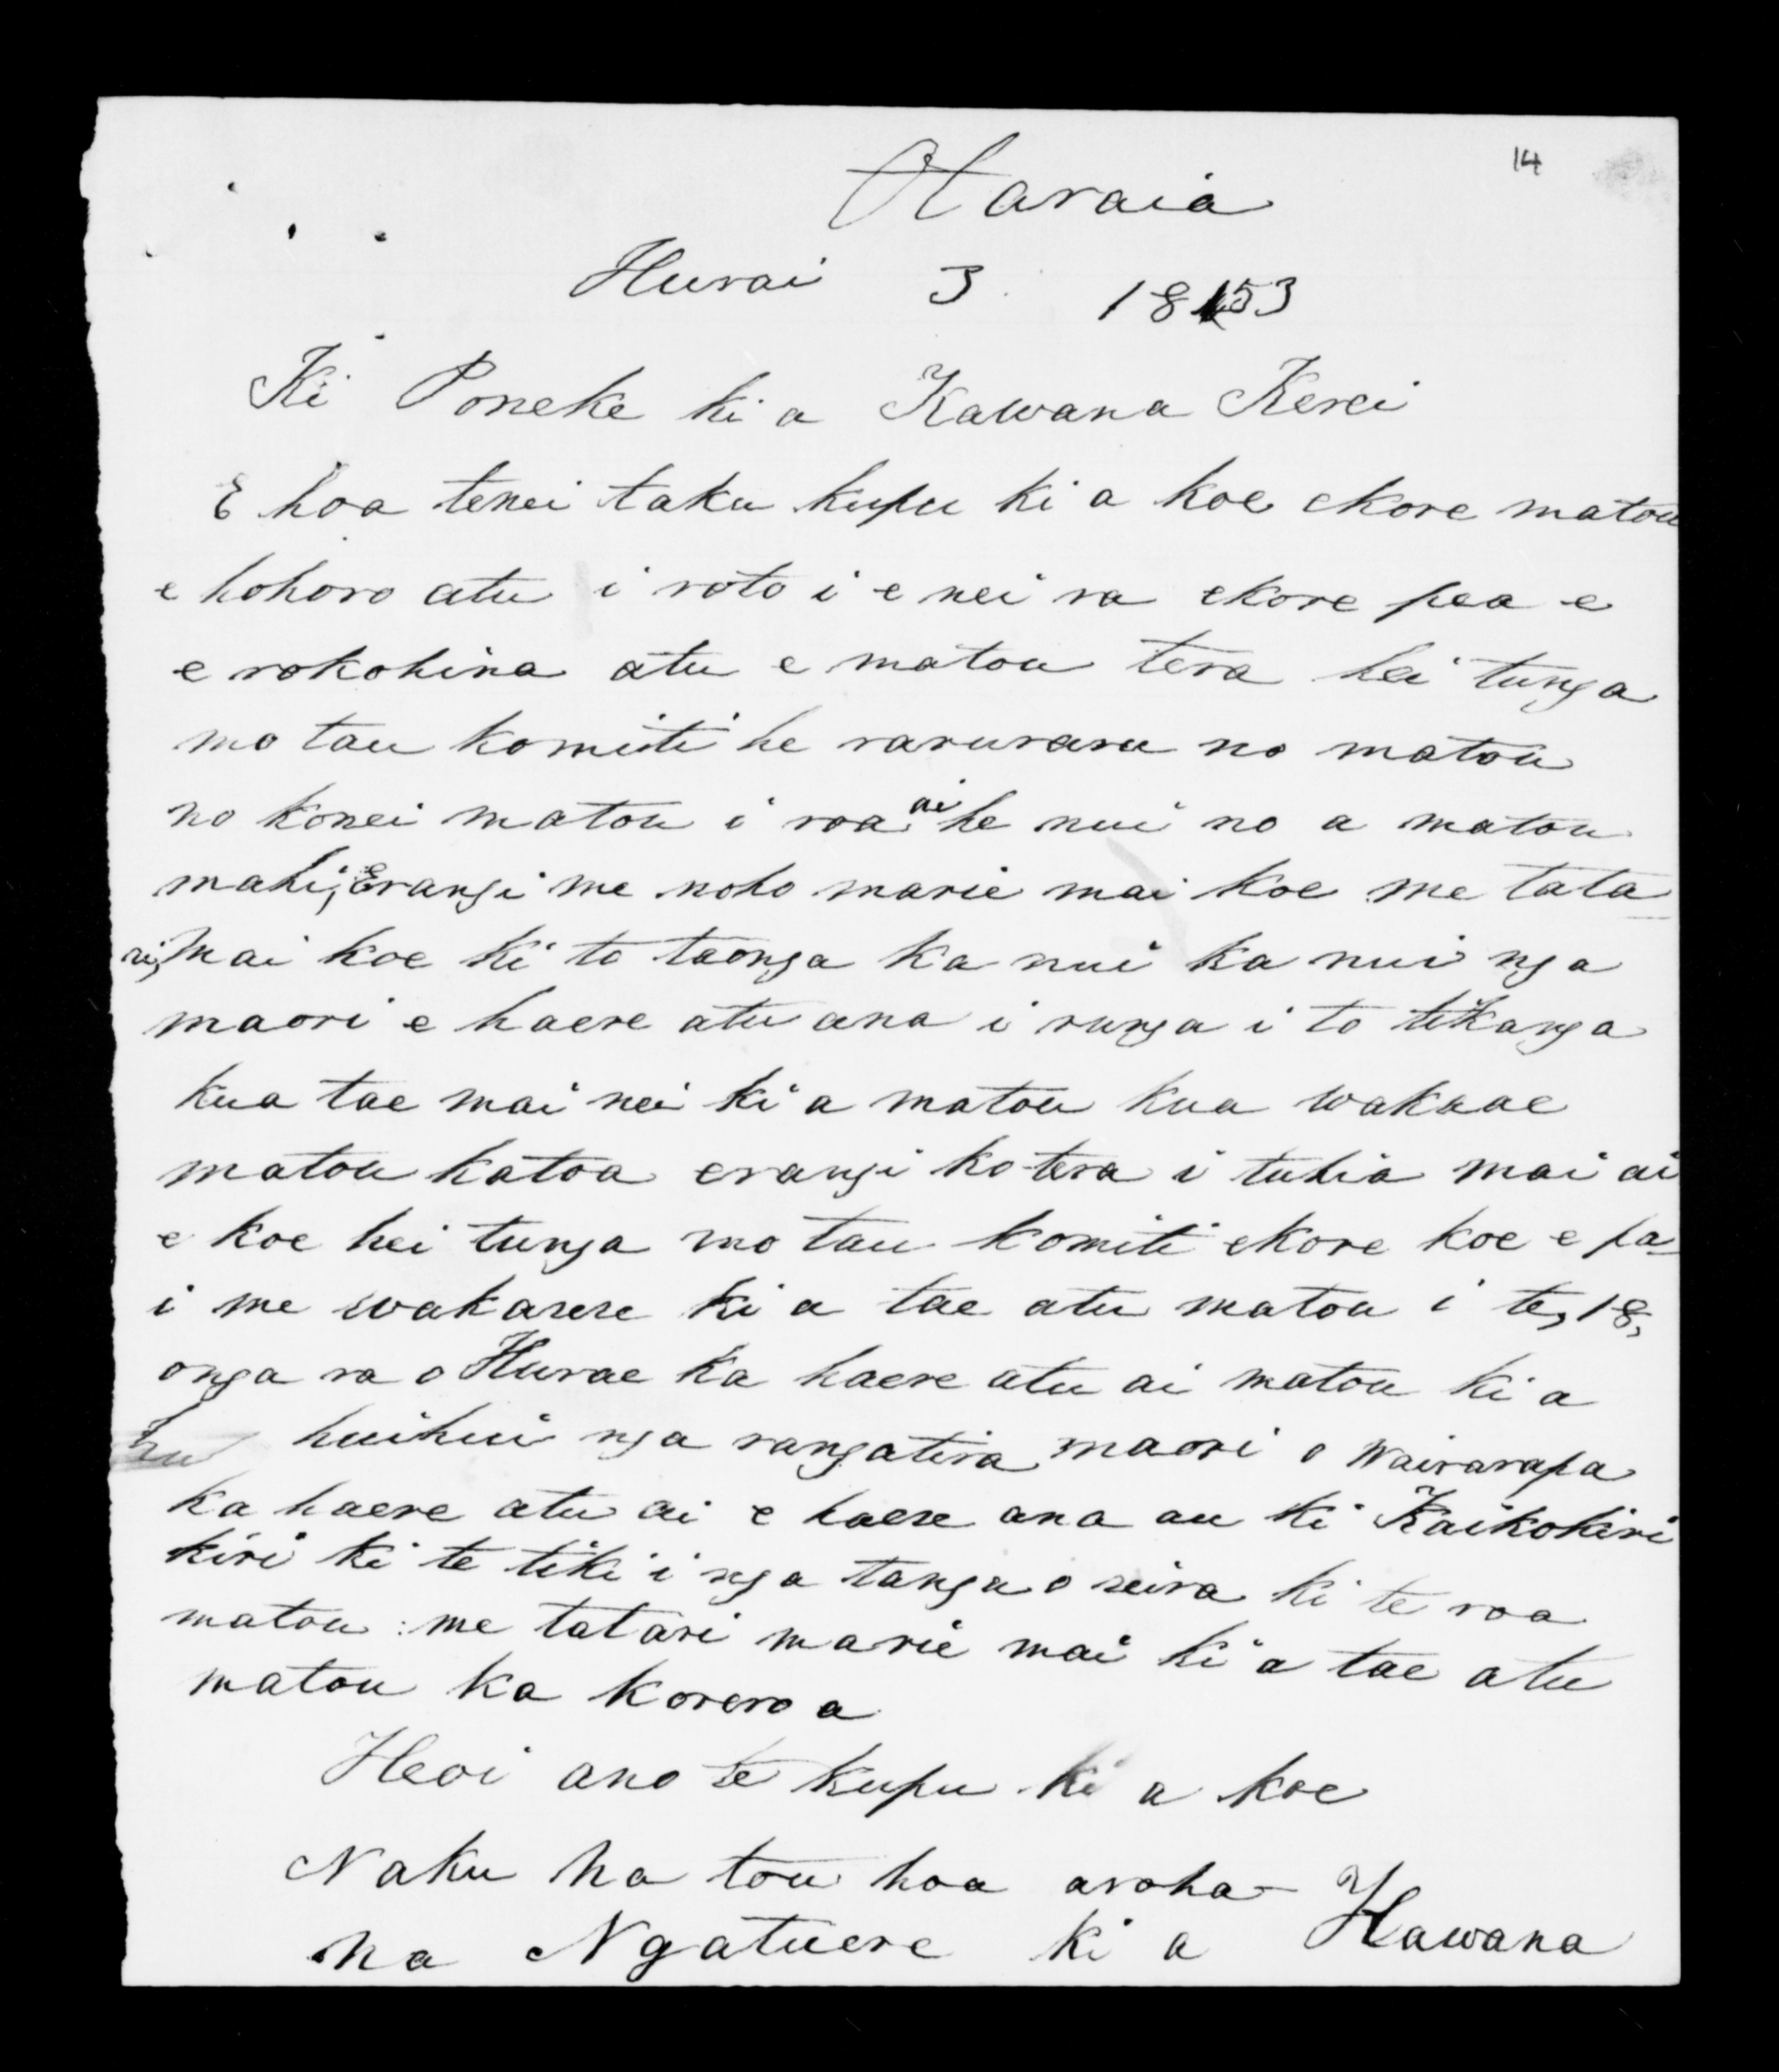 14
Otaraia
Hurai 3 1853
Ki Poneke ki a Kawana Kerei
E hoa tenei taku kupu ki a koe ekore matou
e hohoro atu i roto i e nei ra ekore pea e
e rokohina atu e matou tera hei tunga
mo tau komiti he raruraru no matou
no konei matou i roa ai he nui no a matou
mahi, Erangi me noho marie mai koe me tata
ri, mai koe ki to taonga ka nui ka nui nga
maori e haere atu ana i runga i to tikanga
kua tae mai nei ki a matou kua wakaae
matou katoa erangi ko tera i tuhia mai ai
e koe hei tunga mo tau komiti ekore koe e pa-
i me wakarere ki a tae atu matou i te, 18,
onga ra o Hurae ka haere atu ai matou ki a
hu huihui nga rangatira maori o Wairarapa
ka haere atu ai e haere ana au ki Kaikokiri
kiri ki te tiki i nga tanga o reira ki te roa
matou : me tatari marie mai ki a tae atu
matou ka korero a
Heoi ano te kupu ki a koe
Naku na tou hoa aroha
na Ngatuere ki a Kawana